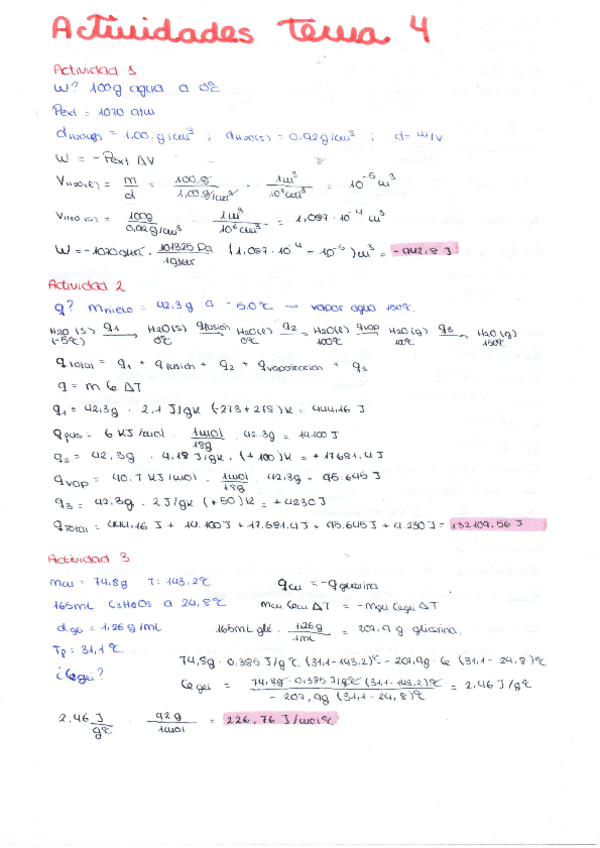 Actividades Tema 4
Actividad 1
W? 100g agua a 0ºC
Pext = 1070 atm
dH2O(l) = 1,00 g/cm³ ; dH2O(s) = 0,92g/cm³ ; d = m/V
W = - Pext ΔV
VH2O(l) = m/d = 100g/1,00g/cm³ · 1m³/10⁶cm³ = 10⁻⁵ m³
VH2O(s) = 100g/0,92g/cm³ · 1m³/10⁶cm³ = 1,087·10⁻⁴ m³
W = -1070atm · 101325 Pa/1atm (1,087·10⁻⁴ - 10⁻⁵) m³ = -942,8 J
Actividad 2
q? mhielo = 42,3g a -5,0ºC → vapor agua 150ºC.
H2O(s) (-5ºC) q1→ H2O(s) 0ºC qfusión→ H2O(l) 0ºC q2→ H2O(l) 100ºC qvap→ H2O(g) q3→ H2O(g) 150ºC
qTotal = q1 + qfusión + q2 + qvaporización + q3
q = m Ce ΔT
q1 = 42,3g · 2,1 J/gK (-273+278)K = 444,16 J
qfus = 6 KJ/mol · 1mol/18g · 42,3g = 14100 J
q2 = 42,3g · 4,18 J/gK · (+100)K = +17681,4 J
qvap = 40,7 KJ/mol · 1mol/18g · 42,3g = 95.645 J
q3 = 42,3g · 2 J/gK (+50)K = +4230 J
qTotal = 444,16 J + 14.100 J + 17.681,4 J + 95.645 J + 4.230 J = 132109,56 J
Actividad 3
mcu = 74,8g T = 143,2ºC qcu = -qglicerina
165mL C3H8O3 a 24,8ºC mcu Cecu ΔT = -mgli Cegli ΔT
dgli = 1,26 g/mL 165mL gli · 1,26g/1mL = 207,9 g glicerina.
Tf = 31,1ºC
74,8g · 0,385 J/gºC (31,1-143,2)ºC = -207,9g · Ce (31,1-24,8)ºC
¿Cegli? Cegli = 74,8g · 0,385 J/gºC (31,1-143,2)ºC / -207,9g (31,1-24,8)ºC = 2,46 J/gºC
2,46 J/gºC · 92g/1mol = 226,76 J/molºC